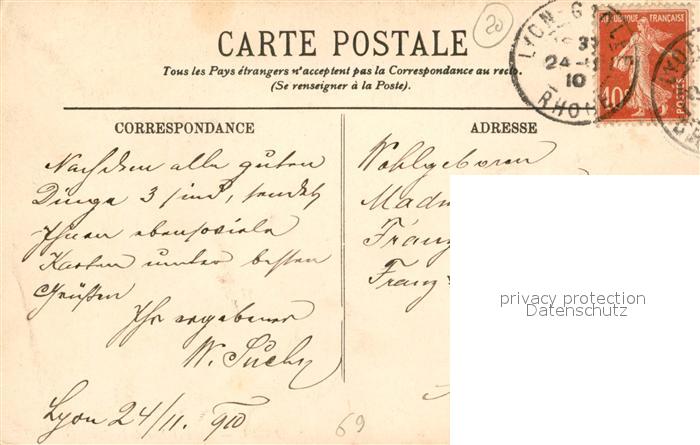 20
CARTE POSTALE
Tous les Pays étrangers n'acceptent pas la Correspondance au recto.
(Se renseigner à la Poste).
LYON-GARE
24-11
10
RHONE
REPUBLIQUE FRANÇAISE
10c
POSTES
CORRESPONDANCE
Nachdem alle guten
Dinge 3 sind, sendet
Ihnen ebensoviele
Karten unter besten
Grüßen
Ihr ergebener
W. Suchy
Lyon 24/11. 910
69
ADRESSE
Wohlgeboren
Mad
Franz
Franz
privacy protection
Datenschutz